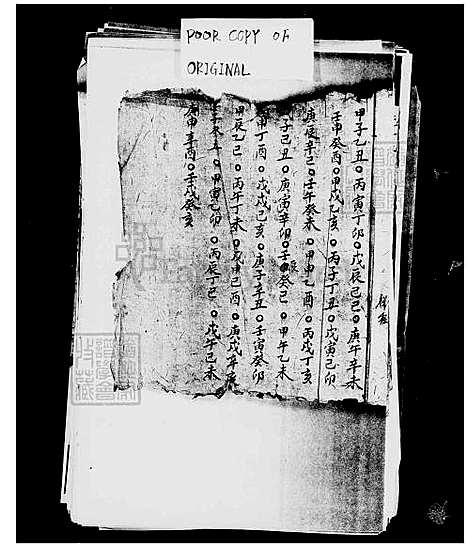 POOR COPY OF
ORIGINAL
甲子乙丑。丙寅丁卯。戊辰己巳。庚午辛未
壬申癸酉。甲戌乙亥。丙子丁丑。戊寅己卯
庚辰辛巳。壬午癸未。甲申乙酉。丙戌丁亥
戊子己丑。庚寅辛卯。壬辰癸巳。甲午乙未
丙申丁酉。戊戌己亥。庚子辛丑。壬寅癸卯
甲辰乙巳。丙午丁未。戊申己酉。庚戌辛亥
壬子癸丑。甲寅乙卯。丙辰丁巳。戊午己未
庚申辛酉。壬戌癸亥